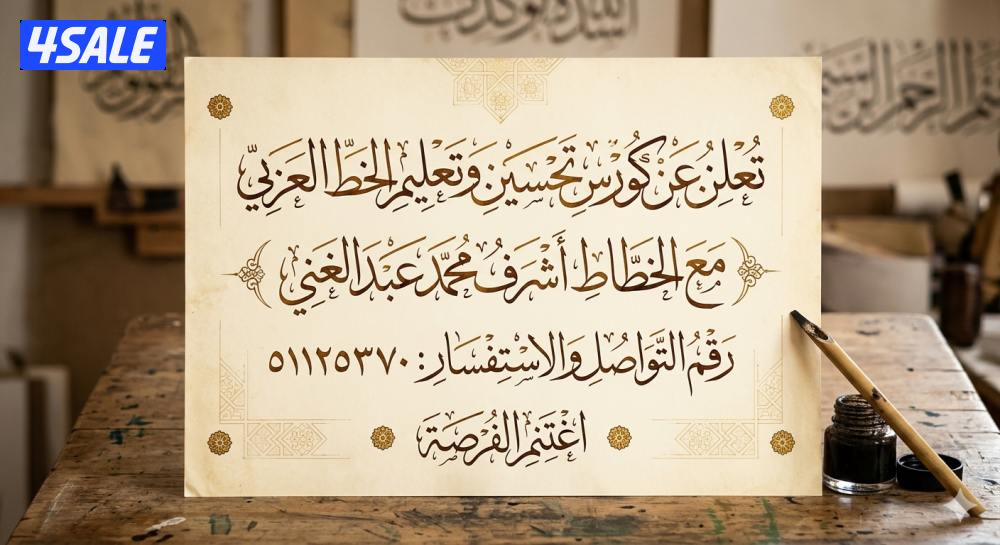 4SALE
تُعْلِنُ عَنْ كُورْسِ تَحْسَيْنِ وَتَعْلِيمِ الخَطِّ العَرَبِيّ
مَعَ الخَطَّاطِ أَشْرَفُ مُحَمَّدَ عَبْدَ الغَنِي
رَقْمُ التَّوَاصُلِ وَالاسْتِفْسَارِ: ٥١١٢٥٣٧٠
اغْتَنِمِ الفُرْصَةَ